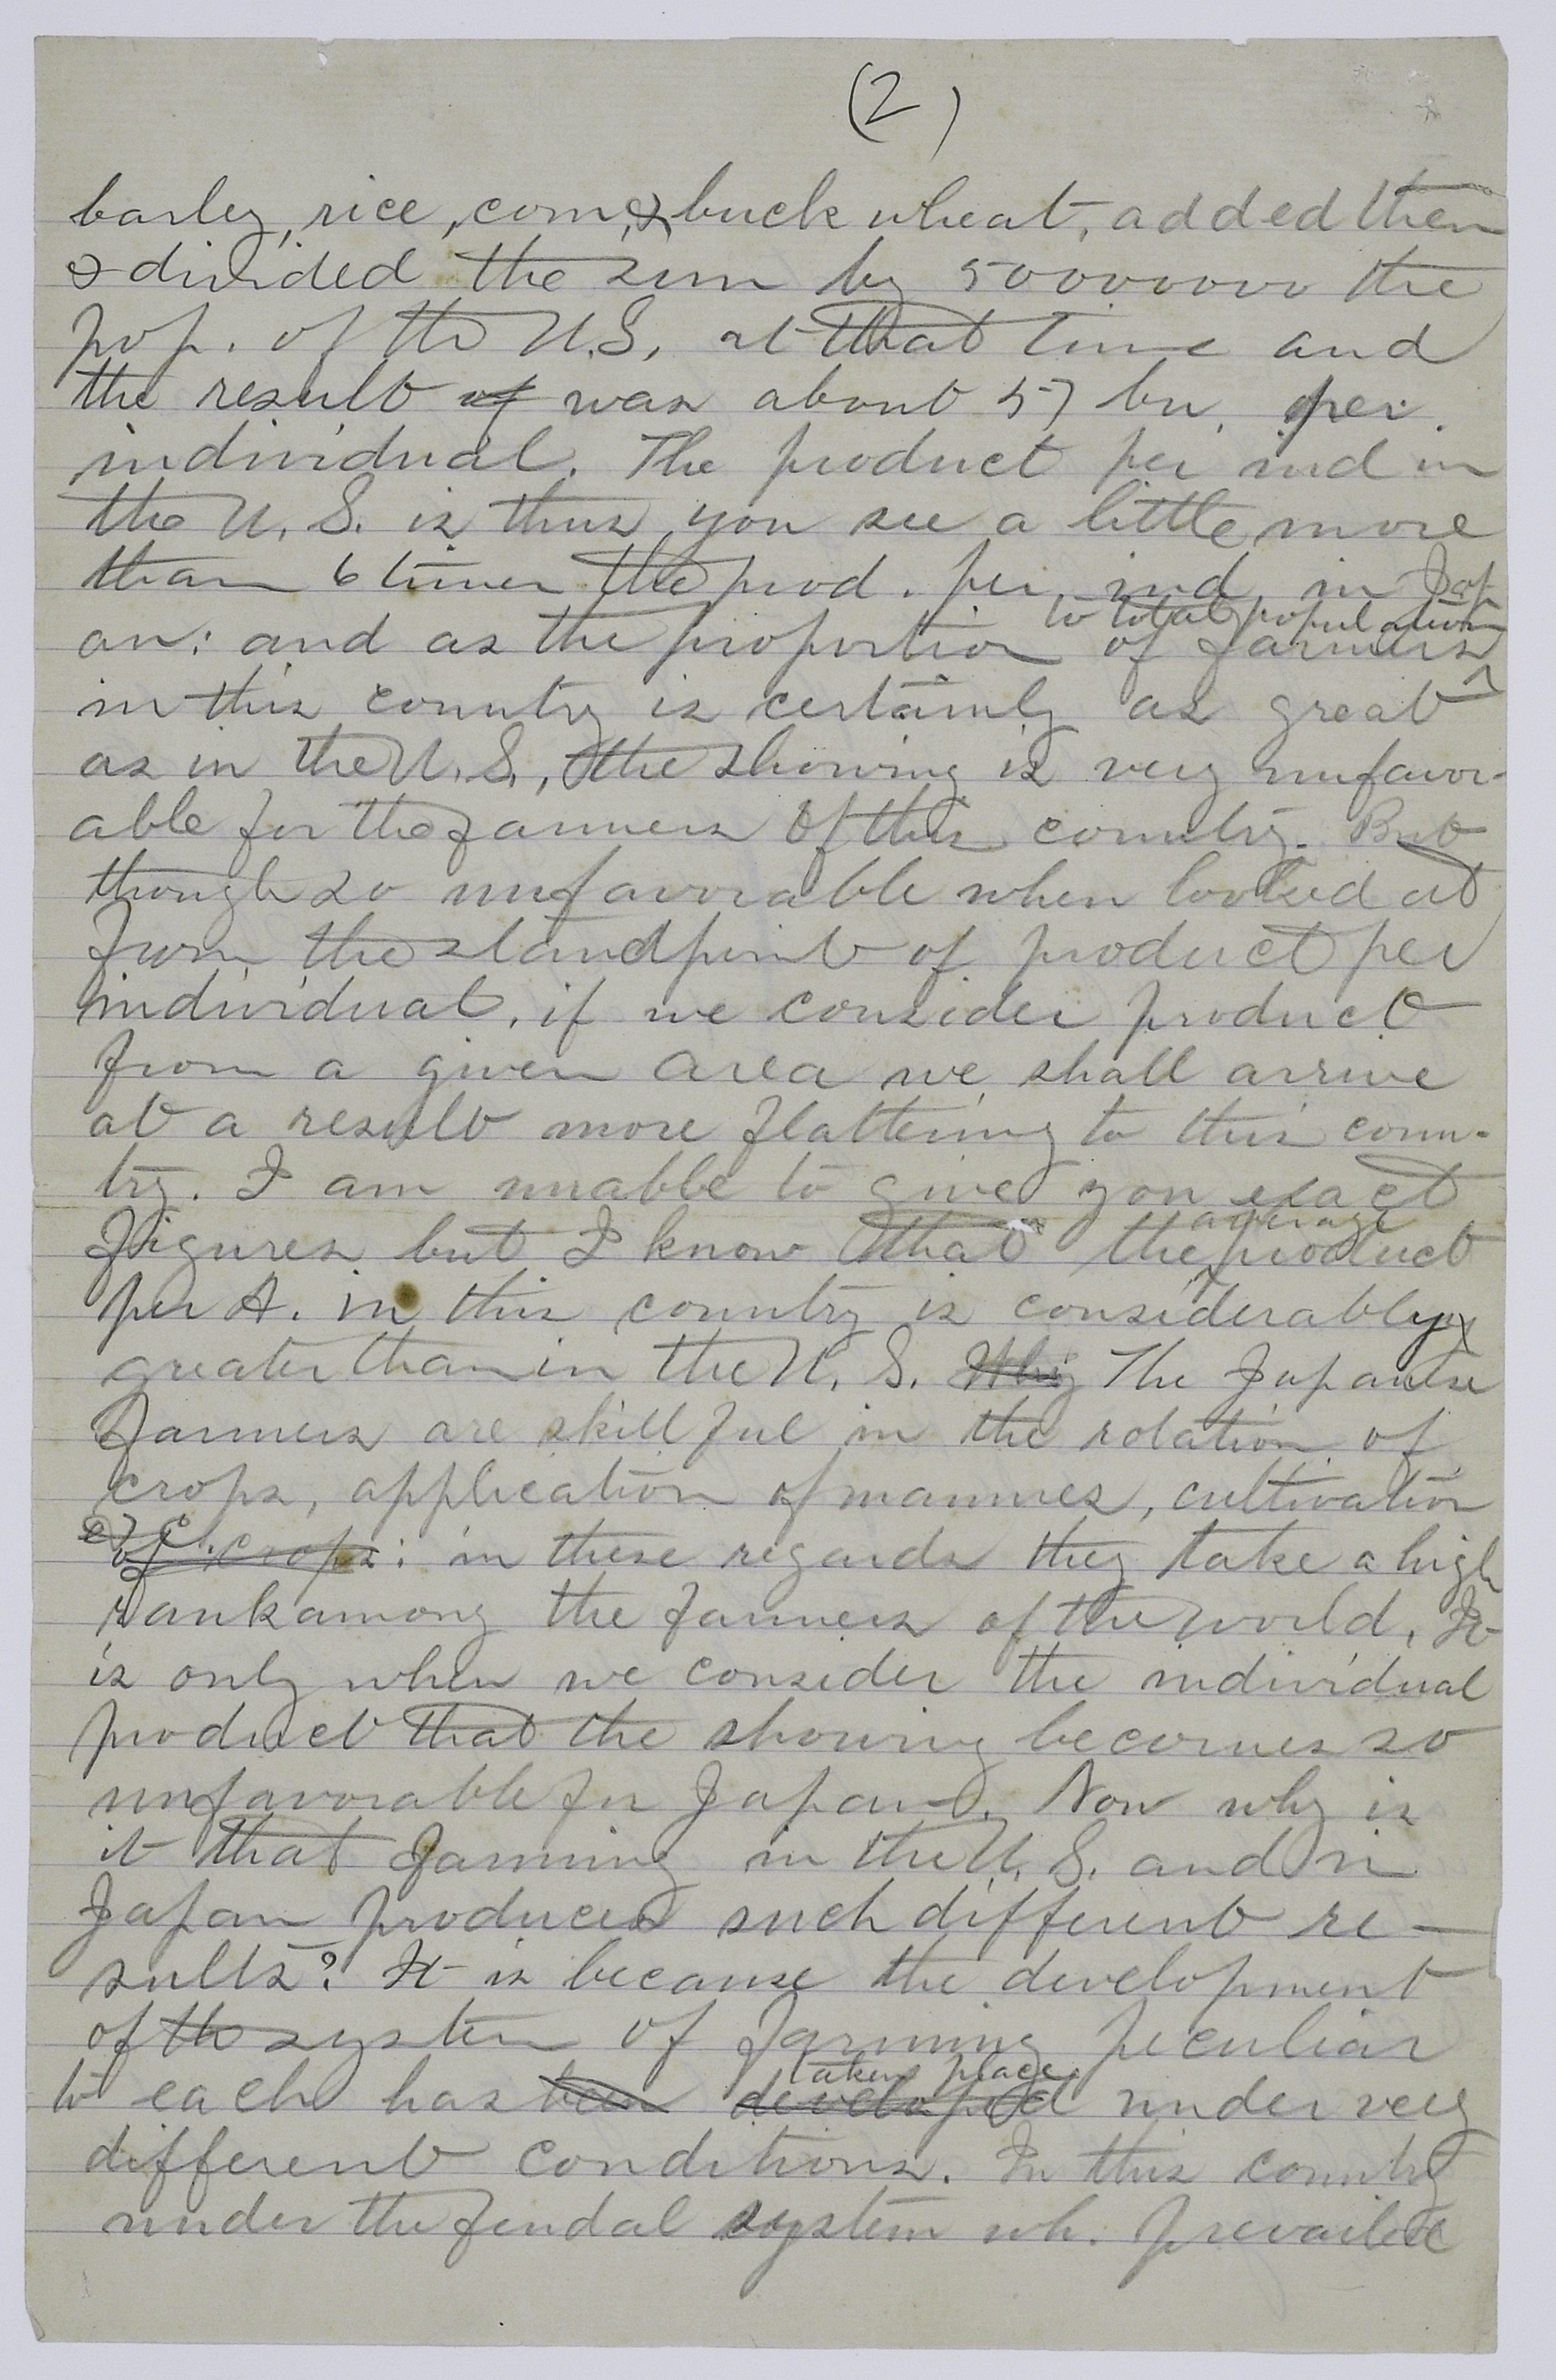 (2)
barley, rice, corn, & buckwheat, added them
& divided the sum by 50000000 the
pop. of the U.S. at that time and
the result of was about 57 bu. per
individual. The product per ind in
the U.S. is thus you see a little more
than 6 times the prod. per. ind. in Jap
to total population
an: and as the proportion of farmers
in this country is certainly as great
as in the U.S., the showing is very unfavor-
able for the farmers of this country. But
though so unfavorable when looked at
from the standpoint of product per
individual, if we consider product
from a given area we shall arrive
at a result more flattering to this coun-
try. I am unable to give you exact
average
figures but I know that the product
per A. in this country is considerably
greater than in the U.S. Why The Japanese
farmers are skillful in the rotation of
crops, application of manures, cultivation
etc.
of crops: in these regards they take a high
rank among the farmers of the world. It
is only when we consider the individual
product that the showing becomes so
unfavorable for Japan. Now why is
it that farming in the U.S. and in
Japan produces such different re-
sults? It is because the development
of the system of farming peculiar
taken place
to each has been developed under very
different conditions. In this country
under the feudal system wh. prevailed